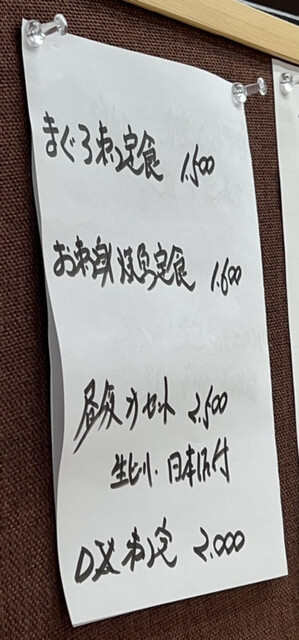 まぐろ刺定食 1.500
お刺身焼魚定食 1.600
昼飲みセット 2.500
生ビール・日本酒付
DX刺定 2.000